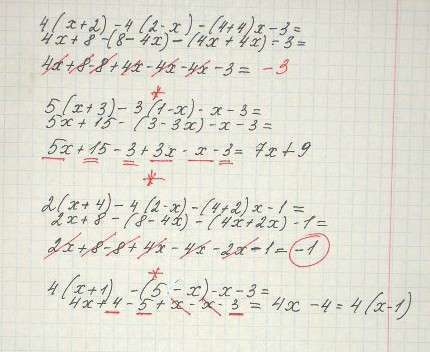 4(x+2)-4(2-x)-(4+4)x-3=
4x+8-(8-4x)-(4x+4x)-3=
4x+8-8+4x-4x-4x-3= -3
*
5(x+3)-3(1-x)-x-3=
5x+15-(3-3x)-x-3=
5x+15-3+3x-x-3= 7x+9
*
2(x+4)-4(2-x)-(4+2)x-1=
2x+8-(8-4x)-(4x+2x)-1=
2x+8-8+4x-4x-2x-1= -1
*
4(x+1)-(5-x)-x-3=
4x+4-5+x-x-3= 4x-4=4(x-1)